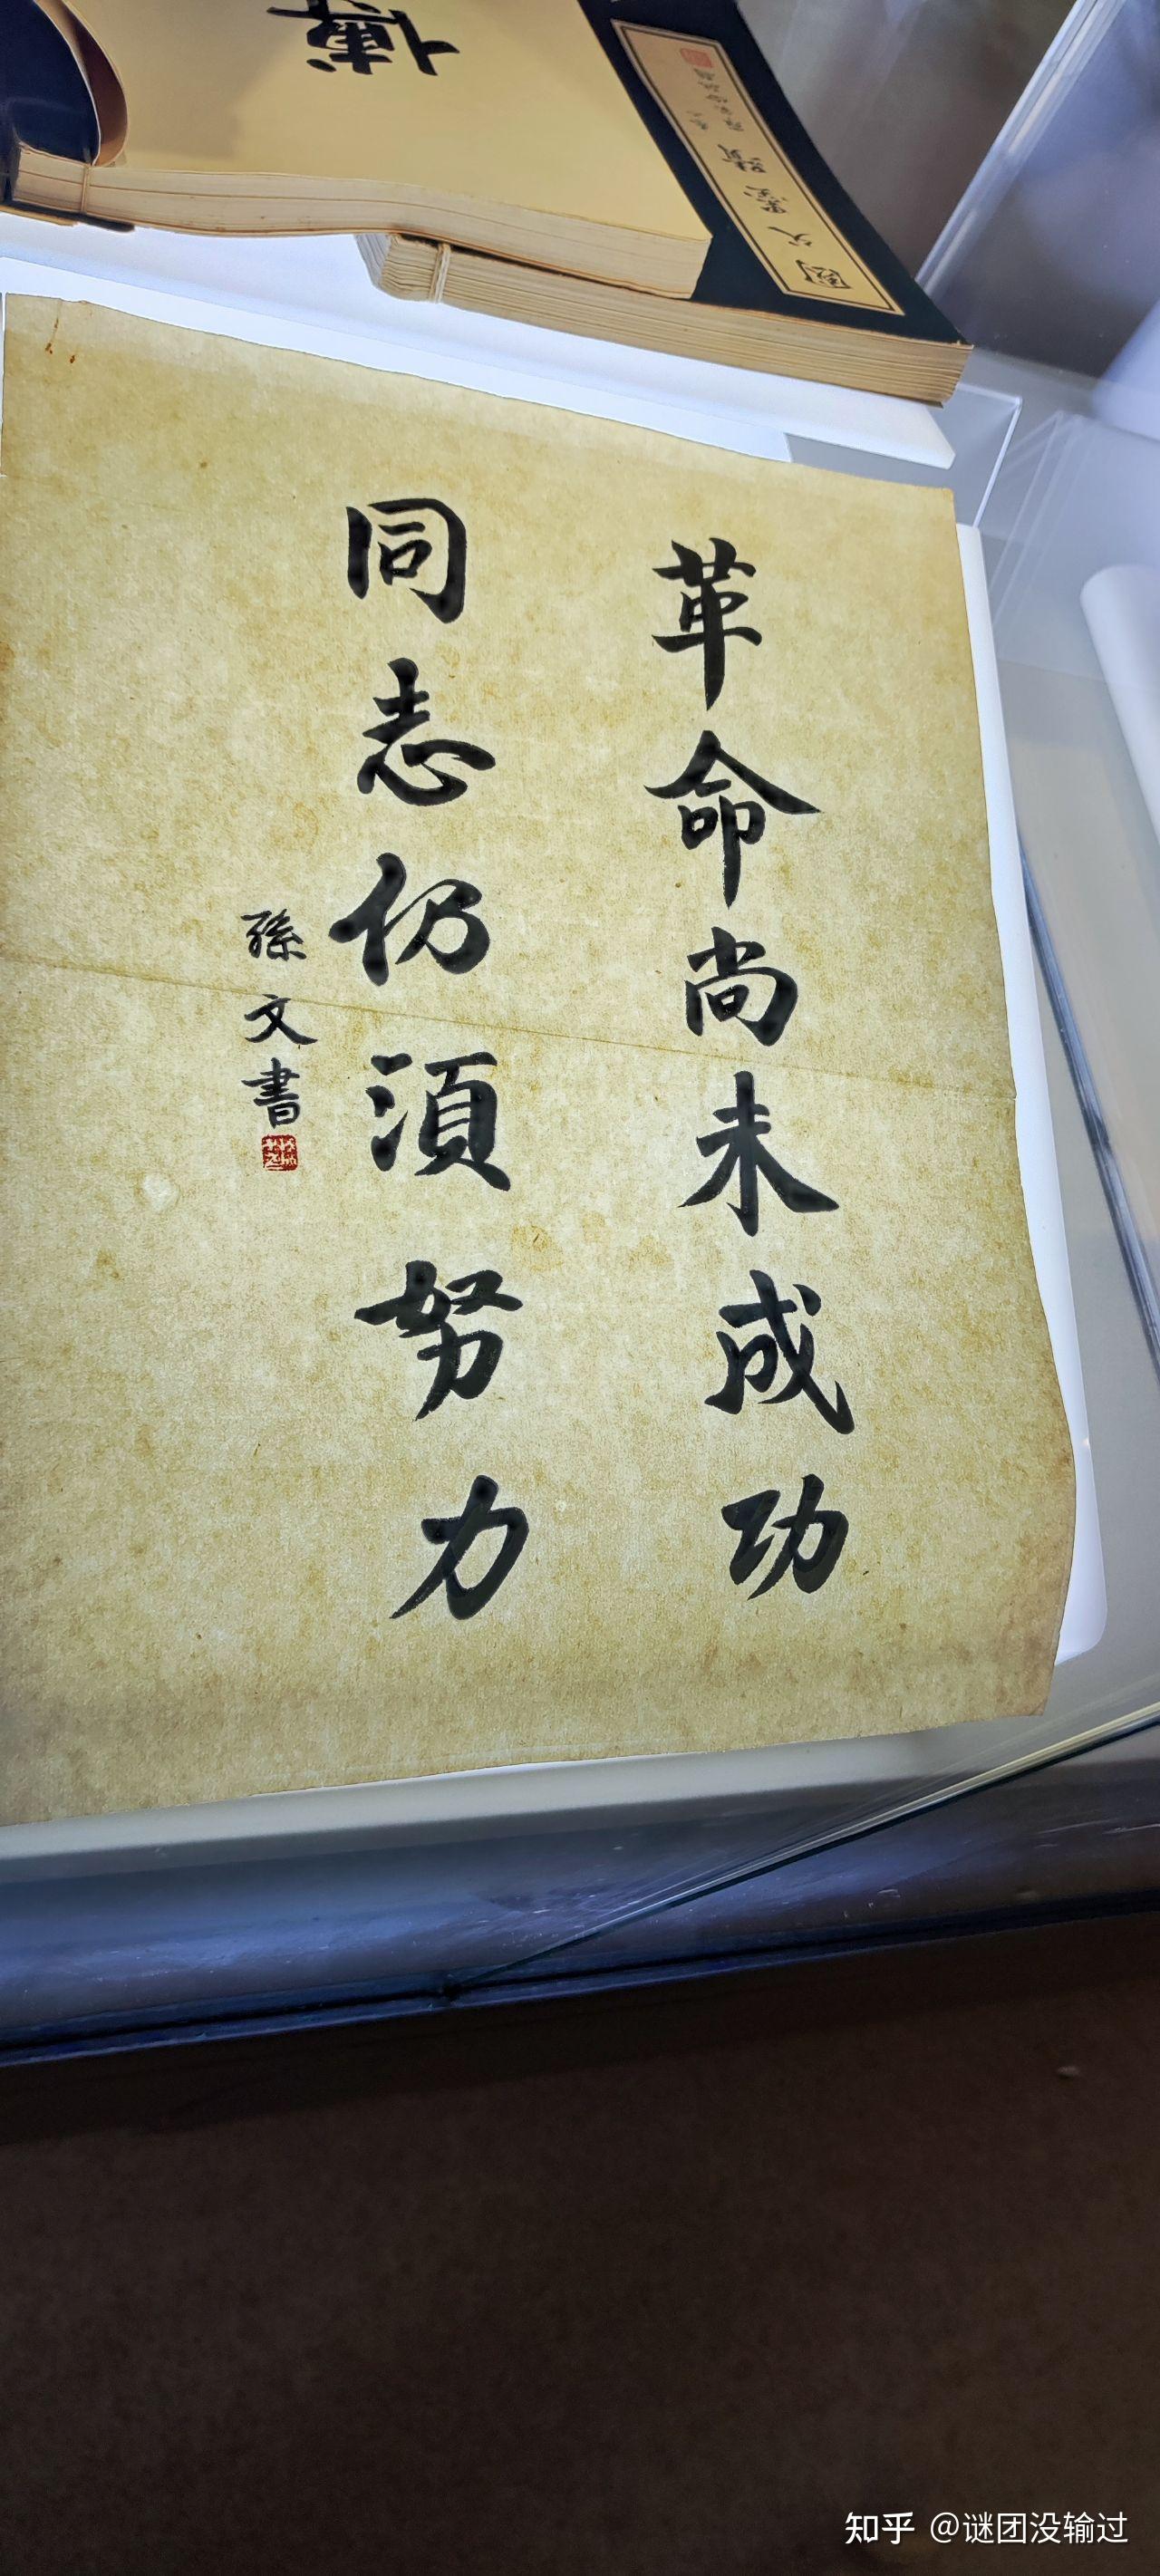 革命尚未成功
同志仍須努力
孫文書
國父墨蹟
博
知乎 @谜团没输过